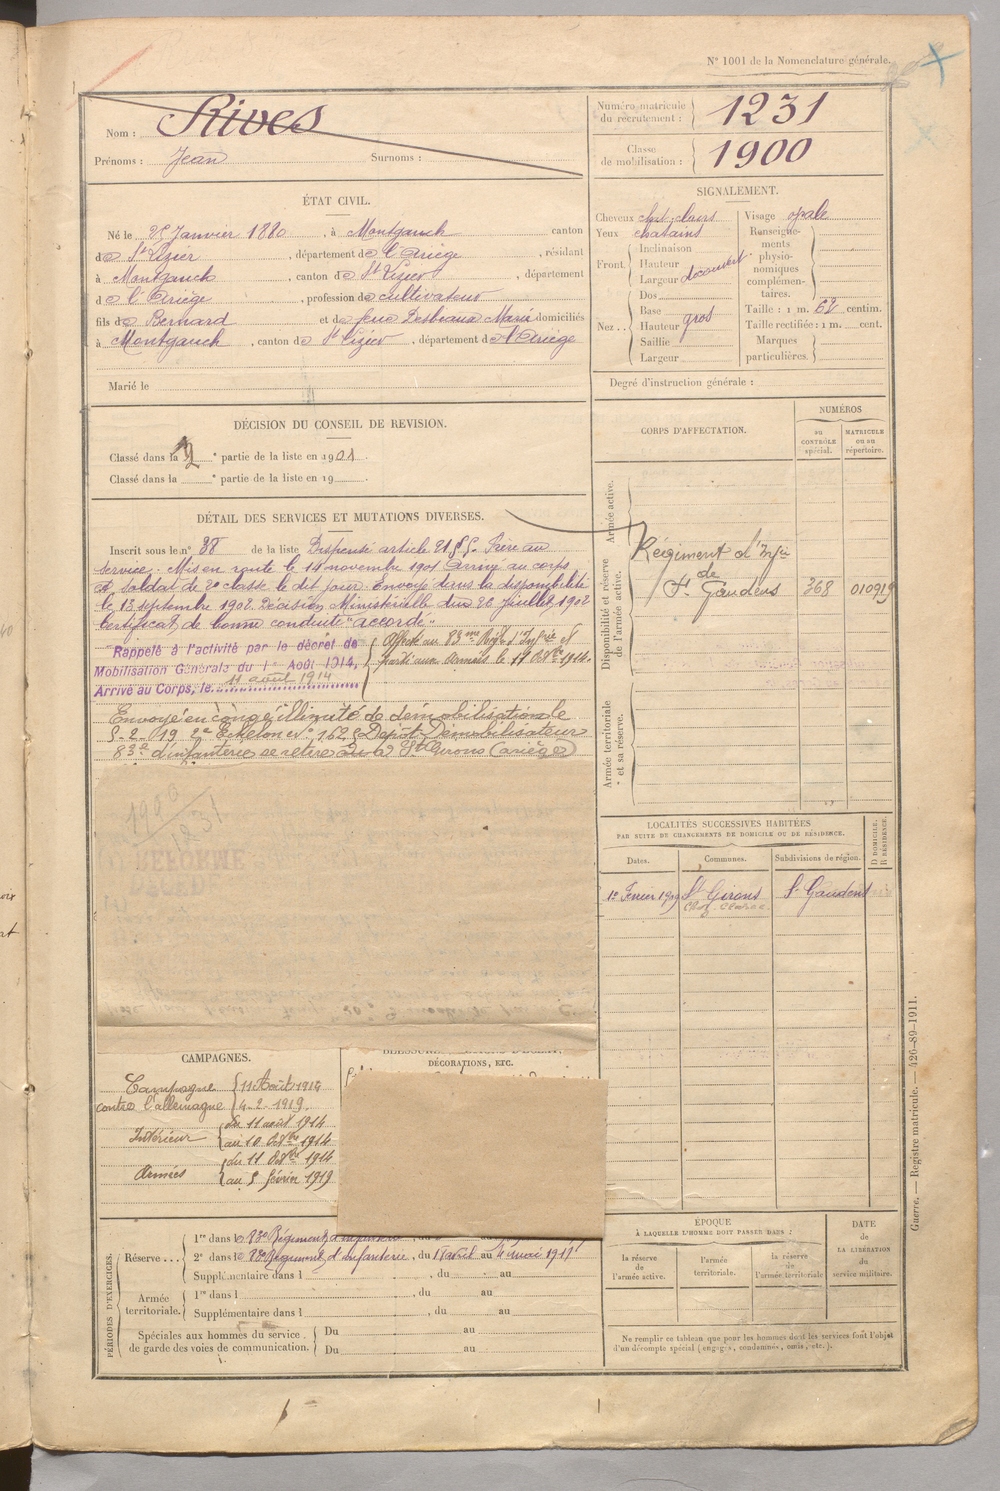 N° 1001 de la Nomenclature générale.
Nom : Rives
Prénoms : Jean Surnoms :
Numéro matricule du recrutement : 1231
Classe de mobilisation : 1900
ÉTAT CIVIL.
Né le 25 Janvier 1880, à Montgauch canton
de St Lizier, département de l'Ariège, résidant
à Montgauch, canton de St Lizier, département
de l'Ariège, profession de cultivateur
fils de Bernard et de feue Desbeaux Marie domiciliés
à Montgauch, canton de St Lizier, département de l'Ariège
Marié le
SIGNALEMENT.
Cheveux chat-clairs
Yeux chatains
Front. Inclinaison
Hauteur
Largeur découvert
Nez.. Dos
Base
Hauteur gros
Saillie
Largeur
Visage ovale
Renseignements physionomiques complémentaires.
Taille : 1 m. 62 centim.
Taille rectifiée : 1 m. cent.
Marques particulières.
Degré d'instruction générale :
DÉCISION DU CONSEIL DE REVISION.
Classé dans la partie de la liste en 1901.
Classé dans la e partie de la liste en 19
DÉTAIL DES SERVICES ET MUTATIONS DIVERSES.
Inscrit sous le n° 88 de la liste Dispensé article 21 §5. Frère au
service. Mis en route le 14 novembre 1901 Arrivé au corps
et soldat de 2e classe le dit jour. Envoyé dans la disponibilité
le 13 septembre 1902. Décision Ministérielle du 26 juillet 1902
Certificat de bonne conduite "accordé"
Rappelé à l'activité par le décret de
Mobilisation Générale du 1er Août 1914,
Arrivé au Corps, le 11 août 1914
Affecté au 83me Régt d'Infrie et
parti aux Armées le 11 Octbre 1914.
Envoyé en congé illimité de démobilisation le
5.2.19 2e Echelon N° 162 Dépôt Démobilisateur
83e d'infanterie se retire à St Girons (ariège)
1900
1231
CORPS D'AFFECTATION.
NUMÉROS
au CONTRÔLE spécial.
MATRICULE ou au répertoire.
Armée active.
Disponibilité et réserve de l'armée active.
Régiment d'Infie
de
St Gaudens 368 010919
Armée territoriale et sa réserve.
LOCALITÉS SUCCESSIVES HABITÉES
PAR SUITE DE CHANGEMENTS DE DOMICILE OU DE RÉSIDENCE.
Dates. Communes. Subdivisions de région. D DOMICILE. R RÉSIDENCE.
St Girons St Gaudens
CAMPAGNES.
Campagne contre l'allemagne 11 Août 1914
4.2.1919.
Intérieur du 11 août 1914
au 10 Octbre 1914
Armées du 11 Octbre 1914
au 5 février 1919
DÉCORATIONS, ETC.
PÉRIODES D'EXERCICES.
Réserve... 1re dans le 83e Régiment d'infanterie
2e dans le 83e Régiment d'infanterie, du avril au 4 mai 1911
Supplémentaire dans l , du au
Armée territoriale. 1re dans l , du au
Supplémentaire dans l , du au
Spéciales aux hommes du service de garde des voies de communication. Du au
Du au
ÉPOQUE
À LAQUELLE L'HOMME DOIT PASSER DANS :
la réserve de l'armée active.
l'armée territoriale.
la réserve de l'armée territoriale
DATE de LA LIBÉRATION du service militaire.
Ne remplir ce tableau que pour les hommes dont les services font l'objet
d'un décompte spécial (engagés, condamnés, omis, etc.).
Guerre. — Registre matricule. — 426-89-1911.